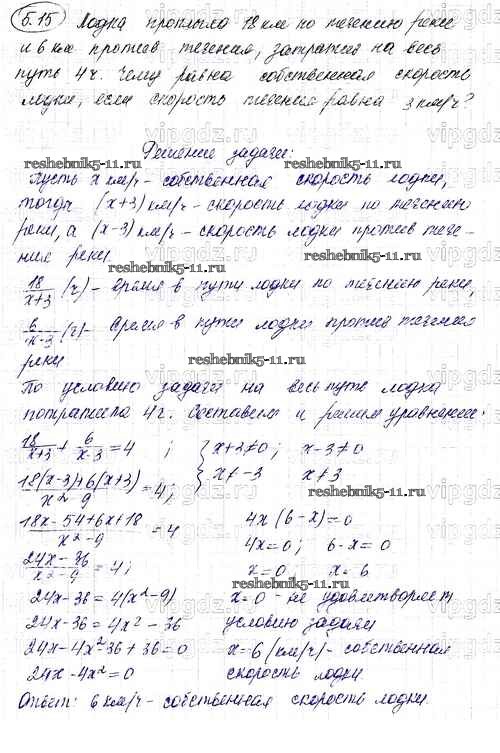 5.15 Лодка проплыла 18 км по течению реки
и 6 км против течения, затратив на весь
путь 4 ч. Чему равна собственная скорость
лодки, если скорость течения равна 3 км/ч?
Решение задачи:
reshebnik5-11.ru reshebnik5-11.ru
Пусть x км/ч - собственная скорость лодки,
тогда (x+3) км/ч - скорость лодки по течению
реки, а (x-3) км/ч - скорость лодки против тече-
ния реки.
reshebnik5-11.ru reshebnik5-11.ru
18/(x+3) (ч) - время в пути лодки по течению реки,
6/(x-3) (ч) - время в пути лодки против течения
реки
reshebnik5-11.ru
По условию задачи на весь путь лодка
потратила 4 ч. Составим и решим уравнение:
18/(x+3) + 6/(x-3) = 4 ; { x+3≠0; x-3≠0
x≠-3 x≠3
(18(x-3)+6(x+3))/(x²-9) = 4;
reshebnik5-11.ru
(18x-54+6x+18)/(x²-9) = 4
(24x-36)/(x²-9) = 4;
24x-36=4(x²-9)
24x-36=4x²-36
24x-4x²-36+36=0
24x-4x²=0
4x(6-x)=0
4x=0; 6-x=0
x=0 x=6
reshebnik5-11.ru
x=0 - не удовлетворяет
условию задачи
x=6 (км/ч) - собственная
скорость лодки.
Ответ: 6 км/ч - собственная скорость лодки.
vipgdz.ru